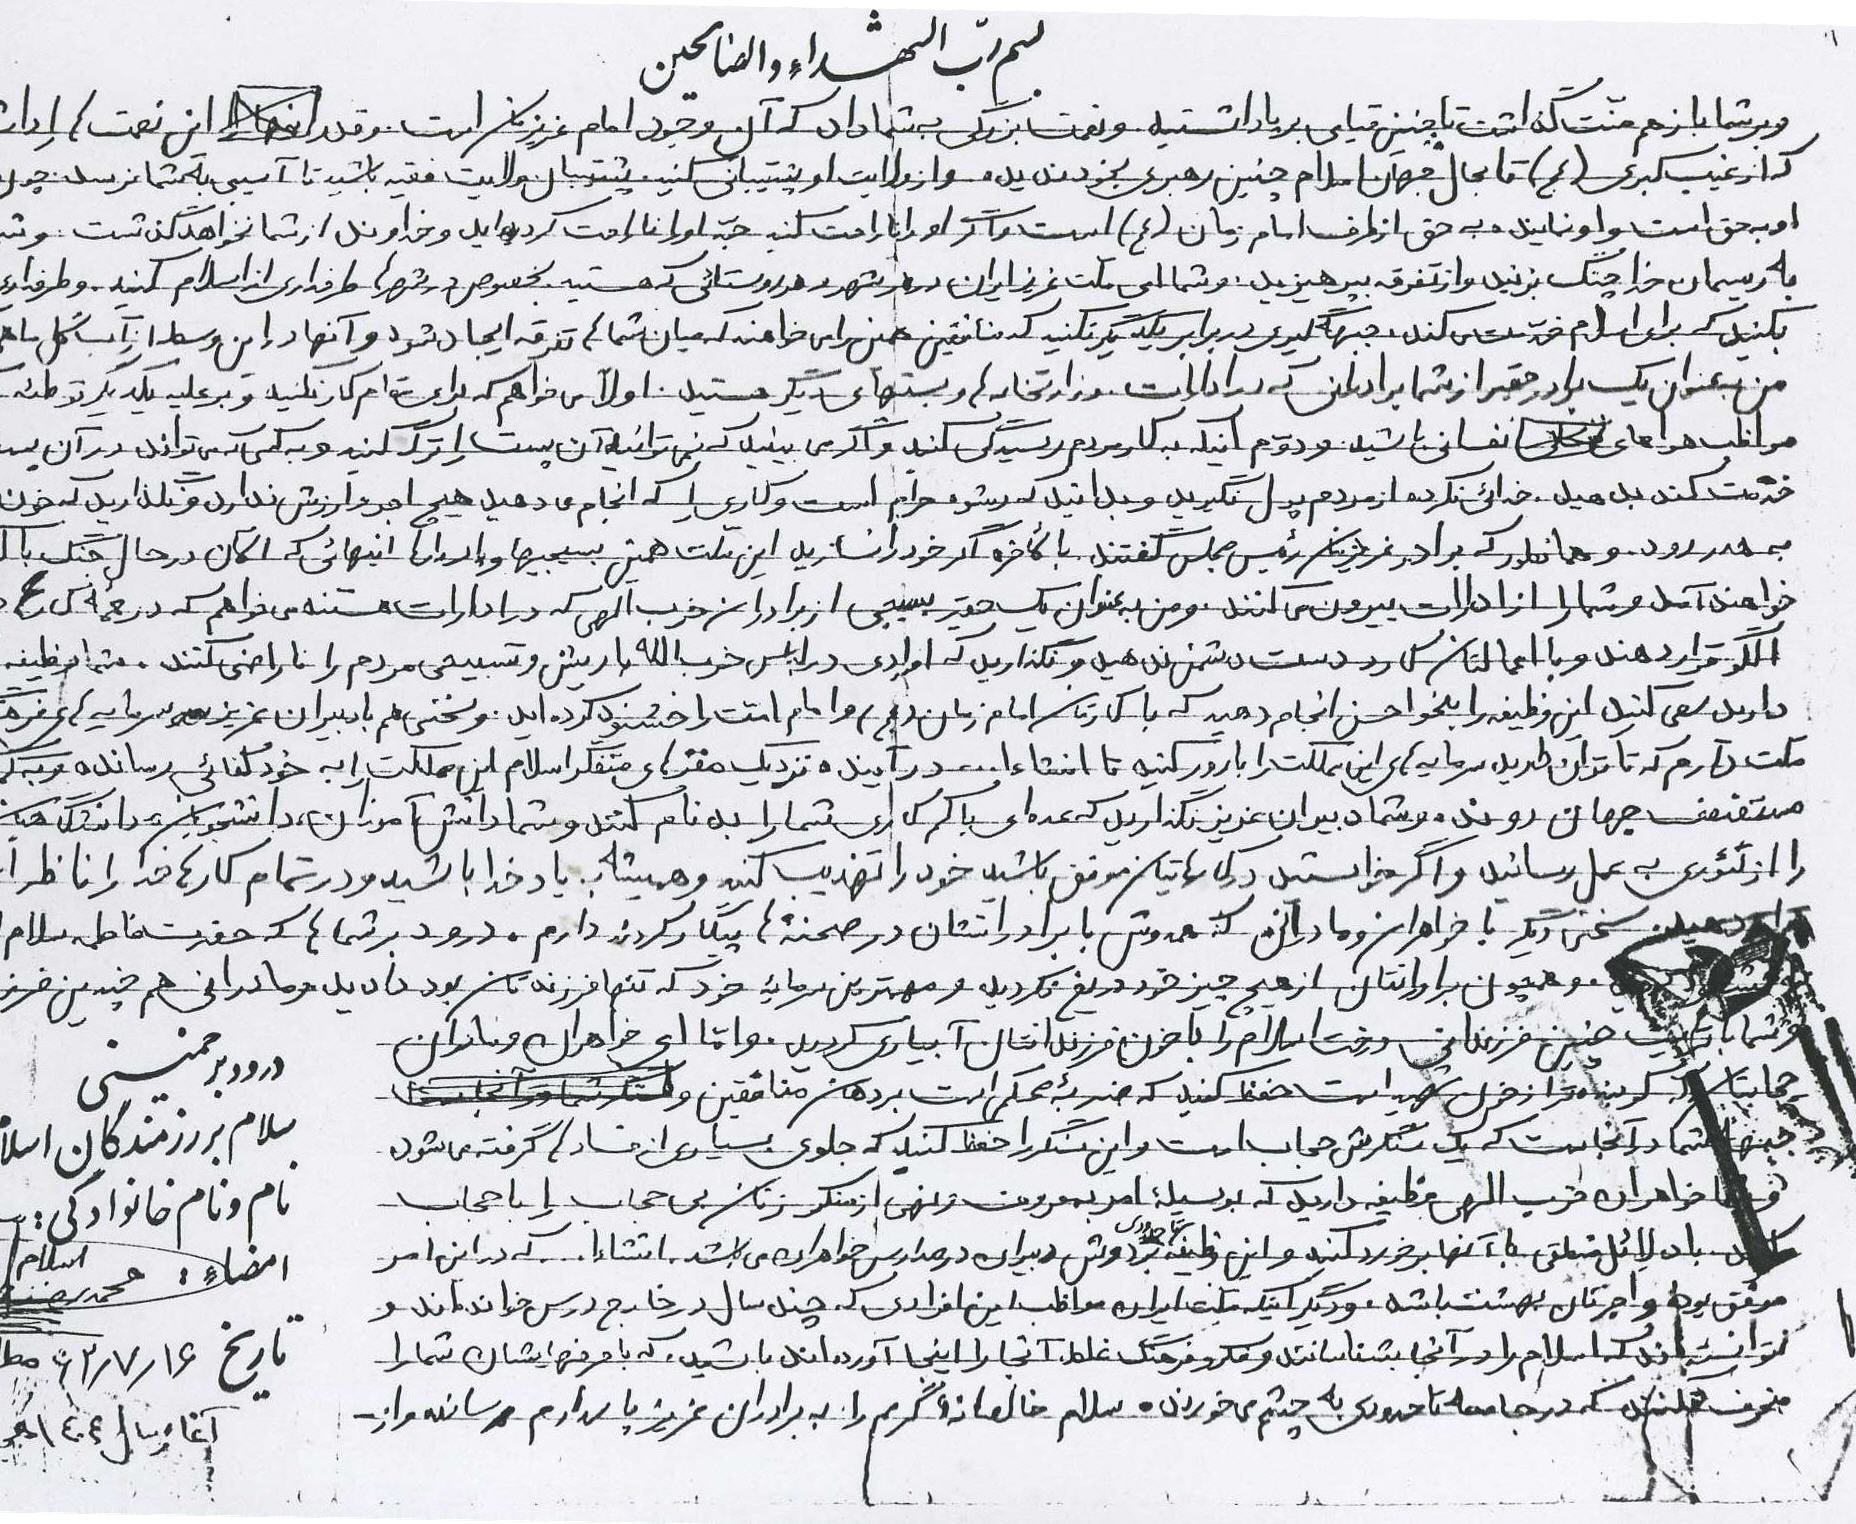 بسم رب الشهداء والصالحین
و بر شما باز هم منت گذاشت تا چنین قیامی بر پا داشتید و نعمت بزرگی به شما داد که آن وجود امام عزیزمان است. و قدر این نعت را
که از غیب کبری (عج) تا بحال جهان اسلام چنین رهبری بخود ندیده و از ولایت او پشتیبانی کنید. پشتیبان ولایت فقیه باشید تا آسیبی به شما نرسد چون
او به حق است و او نماینده به حق از طرف امام زمان (عج) است و اگر او را ناراحت کنید حتما او را ناراحت کرده‌اید و خداوند از شما نخواهد گذشت
به ریسمان خدا چنگ بزنید و از تفرقه بپرهیزید. و شما ای ملت عزیز ایران در هر شهر و هر روستائی که هستید بخصوص در شهرها طرفداری از اسلام کنید. و طرفداری
بکنید که برای اسلام خدمت می کند. جبهه گیری در برابر یکدیگر نکنید که منافقین همین را می خواهند که میان شما ها تفرقه ایجاد شود و آنها در این وسط از آب گل
من بعنوان یک برادر حقیر از شما برادرانی که در ادارات وزارتخانه ها و پستهای دیگر هستید. اولا می خواهم که برای مقام کار نکنید و بر علیه یکدیگر توطئه
مواظب هواهای نفسانی باشید. و دوم اینکه به کار مردم رسیدگی کنید و اگر می بینید که نمی توانید آن پست را ترک کنید و به کسی که می تواند در آن
خدمت کند بدهید. خدائی نکرده از مردم پول نگیرید و بدانید که رشوه حرام است و کاری را که انجام می دهید هیچ اجر و ارزش ندارد و نگذارید که خون
به هدر رود. و همانطور که برادر عزیزمان رئیس مجلس گفتند بالاخره اگر خود را نسازید این ملت همین بسیجیها و اینهائی که الان در حال جنگ با
خواهند آمد و شما را از ادارات بیرون می کنند. و من به عنوان یک حقیر بسیجی از برادران حزب الهی که در ادارات هستند می خواهم که در همه
الگو قرار دهند و با اعمالتان دست دشمن ندهید و نگذارید که افرادی در لباس حزب الله با ریش و تسبیحی مردم را ناراضی کنند. شما وظیفه
دارید سعی کنید این وظیفه را بنحو احسن انجام دهید که با کارتان امام زمان (عج) و امام امت را خشنود کرده اید. و سخنی هم با دبیران عزیز سرمایه های
ملت دارم که تا توان دارید سرمایه های این مملکت را بارور کنید تا انشاءا... در آینده نزدیک مغزهای متفکر اسلام این مملکت را به خودکفائی رسانده و به
مستضعف جهان روند. و شما دبیران عزیز نگذارید که عده ای با کم کاری شما را بدنام کنند و شما دانش آموزان، دانشجویان،
را از تئوری به عمل رسانید و اگر خواستید در کارهایتان موفق باشید خود را تهذیب کنید و همیشه به یاد خدا باشید و در تمام کارها خدا را ناظر
سخنی دیگر با خواهران و مادرانی که همدوش با برادرانشان در صحنه ها پیکار کردند دارم. درود بر شما ها که حضرت فاطمه سلام
و همچون برادرانتان از هیچ چیز خود دریغ نکردید و مهمترین سرمایه خود که تنها فرزندتان بود دادید و مادرانی هم چندین
و شما با تربیت چنین فرزندانی درخت اسلام را با خون فرزندانتان آبیاری کردید. و اما ای خواهران و مادران
حجابتان که کوبنده تر از خون شهید است حفظ کنید که ضربه محکمی است بر دهان منافقین و
جبهه شما در آنجاست که یک سنگرش حجاب است و این سنگر را حفظ کنید که جلوی بسیاری از فساد ها گرفته می شود
خواهران حزب الهی وظیفه دارید که بوسیله امر بمعروف و نهی از منکر زنان بی حجاب را با حجاب
با دلائل منطقی با آنها برخورد کنید و این وظیفه تا حدودی بر دوش دبیران در مدارس خواهران می باشد. انشاءا... که در این امر
موفق بوده و اجرتان بهشت باشد. و دیگر اینکه ملت ایران مواظب این افرادی که چند سال در خارج درس خوانده اند و
نتوانسته اند که اسلام را در آنجا بشناسانند و فکر و فرهنگ غلط آنجا را اینجا آورده اند باشید. که با حرفهایشان شما را
منحرف نکنند که در جامعه تا حدودی به چشم می خورند. سلام خالصانه و گرمم را به برادران عزیز پاسدارم رسانده و از
درود بر خمینی
سلام بر رزمندگان
نام و نام خانوادگی:
امضاء: محمدرضا
اسلام
تاریخ ۶۲/۷/۱۶
آغاز سال ۱۴۰۴